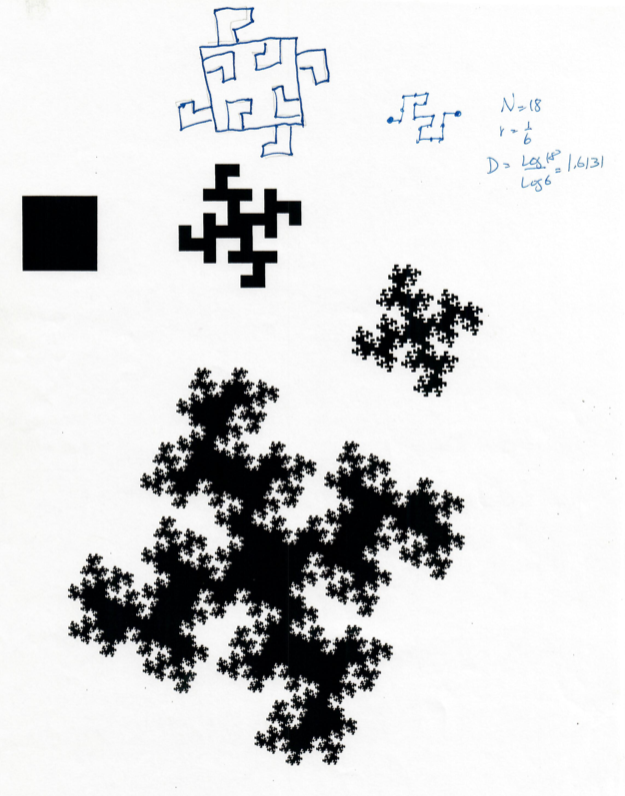 N=18
r = 1/6
D = Log 18 / Log 6 = 1.6131